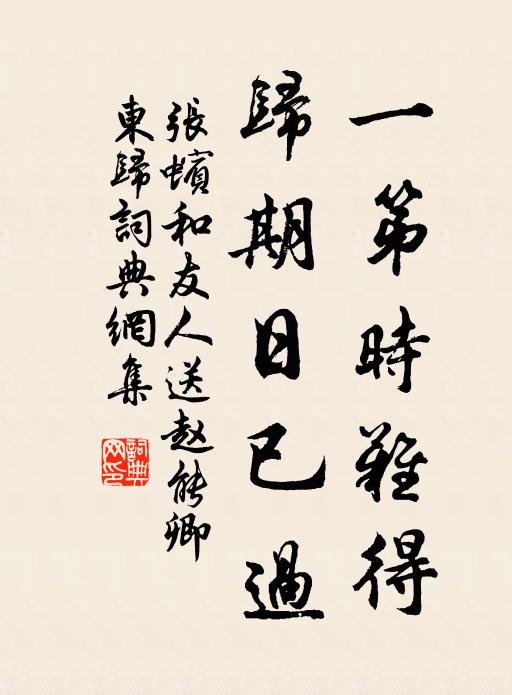 一第時難得
歸期日已過
張蠙和友人送赵能卿
東歸詞典網集
詞典網印